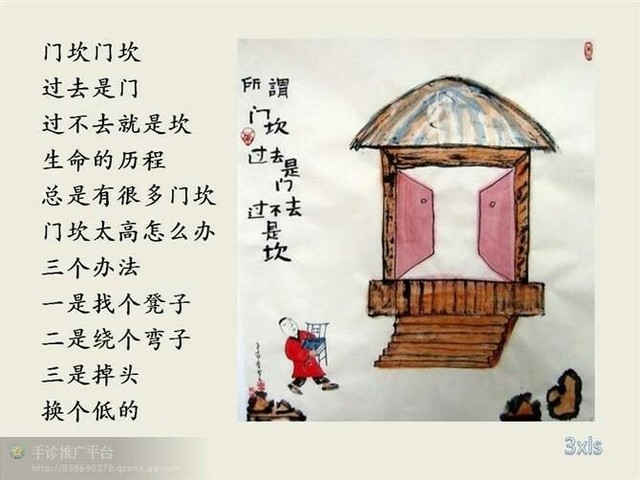 门坎门坎
过去是门
过不去就是坎
生命的历程
总是有很多门坎
门坎太高怎么办
三个办法
一是找个凳子
二是绕个弯子
三是掉头
换个低的
所謂
门坎
过去
是门
过不去
是坎
3xls
手诊推广平台